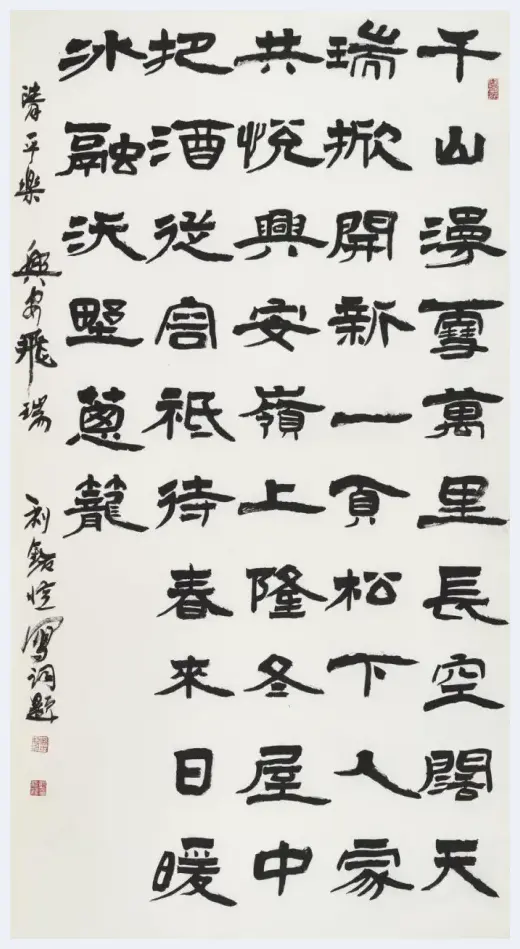 千山漫雪萬里長空闊天
瑞掀開新一頁松下人家
共悅興安嶺上隆冬屋中
把酒從容祗待春來日暖
冰融沃野蔥籠
清平樂 興安飛瑞 詞題